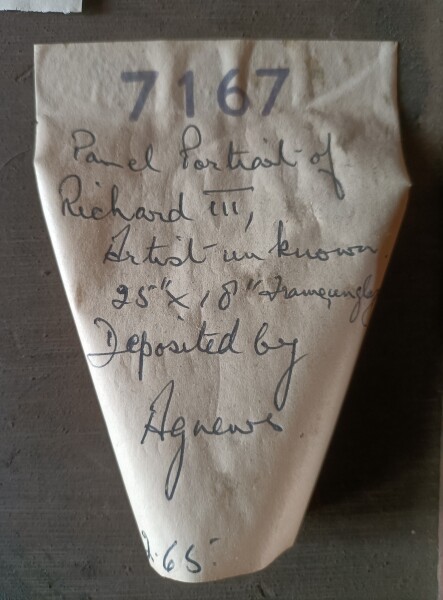 7167
Panel Portrait of
Richard III,
Artist unknown
25" x 18"
Deposited by
Agnews
65